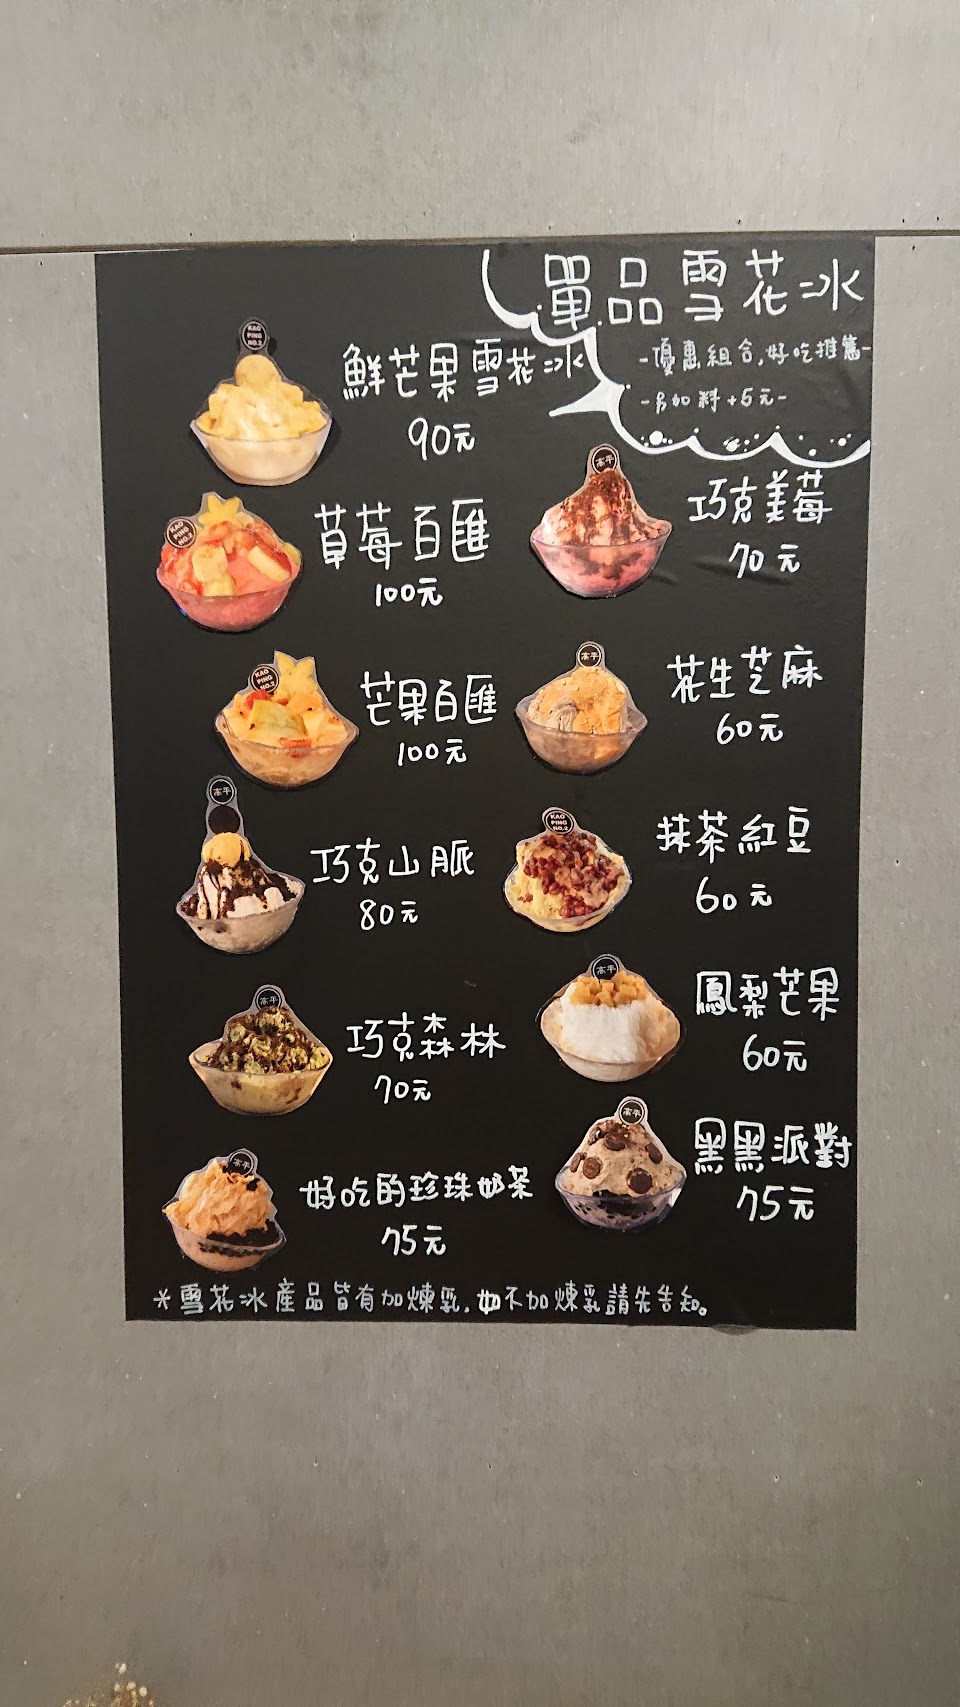 單品雪花冰
-優惠組合,好吃推薦-
-另加料+5元-
鮮芒果雪花冰
90元
草莓百匯
100元
芒果百匯
100元
巧克山脈
80元
巧克森林
70元
好吃的珍珠奶茶
75元
巧克美莓
70元
花生芝麻
60元
抹茶紅豆
60元
鳳梨芒果
60元
黑黑派對
75元
*雪花冰產品皆有加煉乳,如不加煉乳請先告知。
KAO
PING
NO.2
KAO
PING
NO.2
KAO
PING
NO.2
高平
高平
高平
高平
高平
KAO
PING
NO.2
高平
高平